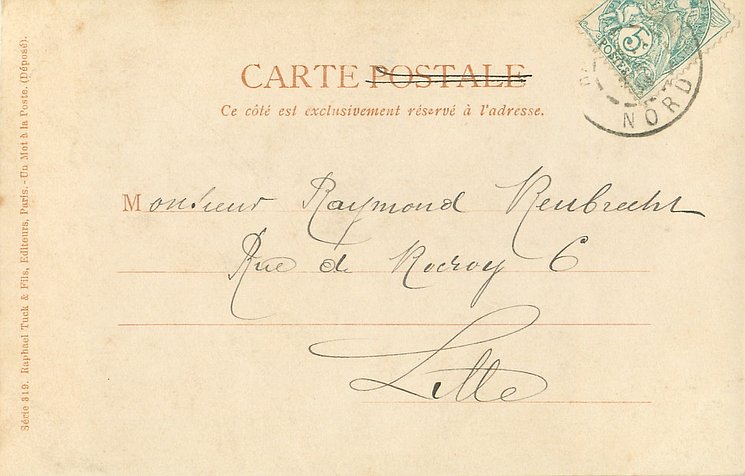 CARTE POSTALE
Ce côté est exclusivement réservé à l'adresse.
5
POSTES
NORD
Monsieur Raymond Renbrecht
Rue de Rocroy 6
Lille
Série 819. Raphael Tuck & Fils, Editeurs, Paris. - Un Mot à la Poste. (Déposé).